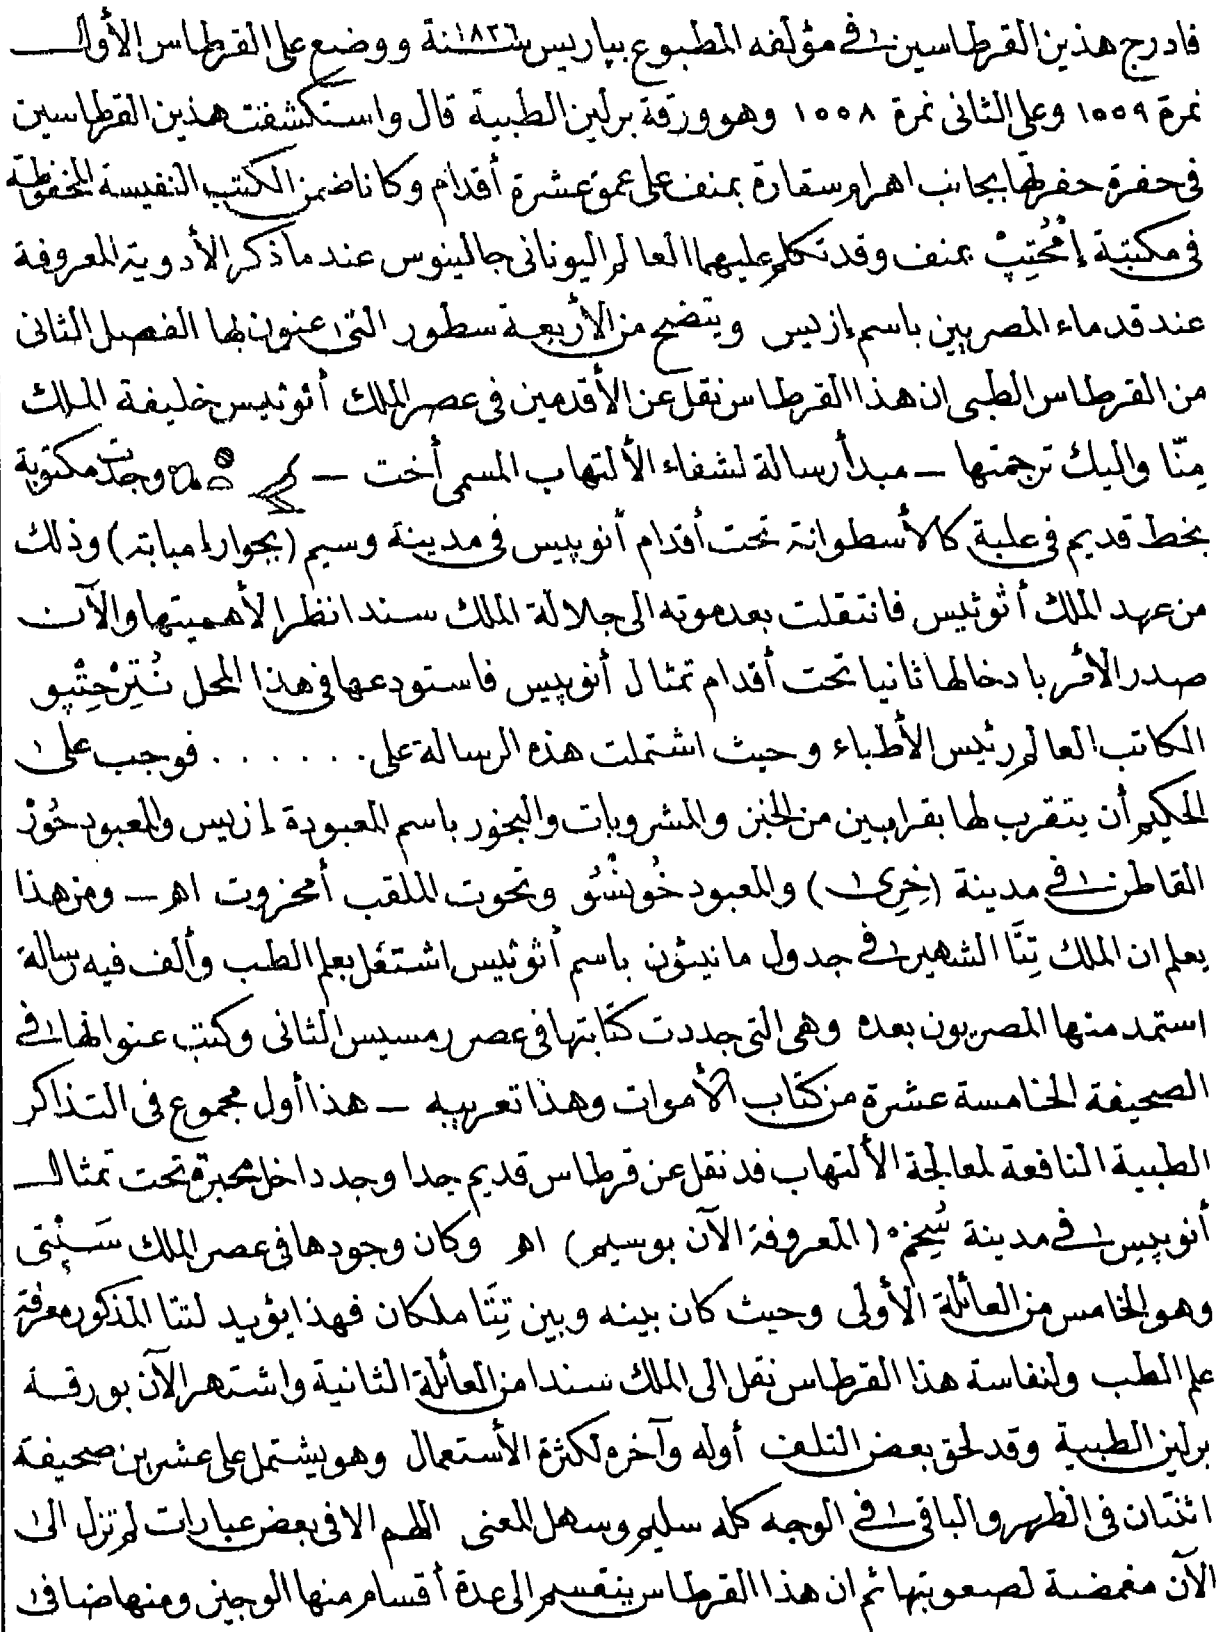 فادرج هذين القرطاسين فى مؤلفه المطبوع بباريس سنة ١٨٢٦ ووضع على القرطاس الأول
نمرة ١٥٥٩ وعلى الثانى نمرة ١٥٥٨ وهو ورقة برلين الطبية قال واستكشفت هذين القرطاسين
فى حفرة حفرتها بجانب اهرام سقارة بمنف على عمق عشرة أقدام وكانا ضمن الكتب النفيسة المحفوظة
فى مكتبة إمْحُتِپْ بمنف وقد تكلم عليهما العالم اليونانى جالينوس عند ما ذكر الأدوية المعروفة
عند قدماء المصريين باسم إزيس ويتضح من الأربعة سطور التى عنون بها الفصل الثانى
من القرطاس الطبى ان هذا القرطاس نقل عن الأقدمين فى عصر الملك أثوثيس خليفة الملك
مِنّا واليك ترجمتها — مبدأ رسالة لشفاء الألتهاب المسمى أخت — وجدت مكتوبة
بخط قديم فى علبة كالأسطوانة تحت أقدام أنوپيس فى مدينة وسيم (بجوار إمبابة) وذلك
من عهد الملك أثوثيس فانتقلت بعد موته الى جلالة الملك سندا نظرا لأهميتها والآن
صدر الأمر بادخالها ثانيا تحت أقدام تمثال أنوپيس فاستودعها فى هذا المحل نُتِرْحِتْپو
الكاتب العالم رئيس الأطباء وحيث اشتملت هذه الرسالة على . . . . . . فوجب على
الحكيم أن يتقرب لها بقرابين من الخبز والمشروبات والبخور باسم المعبودة إزيس والمعبود حُورْ
القاطن فى مدينة (خِرِى) والمعبود خُونْسُو وتحوت الملقب أمخروت اهـ — ومن هذا
يعلم ان الملك تِتَّا الشهير فى جدول مانيثون باسم أثوثيس اشتغل بعلم الطب وألف فيه رسالة
استمد منها المصريون بعده وهى التى جددت كتابتها فى عصر رمسيس الثانى وكتب عنوانها فى
الصحيفة الخامسة عشرة من كتاب الأموات وهذا تعريبه — هذا أول مجموع فى التذاكر
الطبية النافعة لمعالجة الألتهاب قد نقل عن قرطاس قديم جدا وجد داخل محبرة تحت تمثال
أنوپيس فى مدينة سُيخِم (المعروفة الآن بوسيم) اهـ وكان وجودها فى عصر الملك سَپْتى
وهو الخامس من العائلة الأولى وحيث كان بينه وبين تِتَا ملكان فهذا يؤيد لتتا المذكور معرفة
علم الطب ولنفاسة هذا القرطاس نقل الى الملك سندا من العائلة الثانية واشتهر الآن بورقة
برلين الطبية وقد لحق بعض التلف أوله وآخره لكثرة الأستعمال وهو يشتمل على عشرين صحيفة
اثنتان فى الظهر والباقى فى الوجه كله سليم وسهل المعنى اللهم الا فى بعض عبارات لم تزل الى
الآن مغمضة لصعوبتها ثم ان هذا القرطاس ينقسم الى عدة أقسام منها الوجيز ومنها ضافى